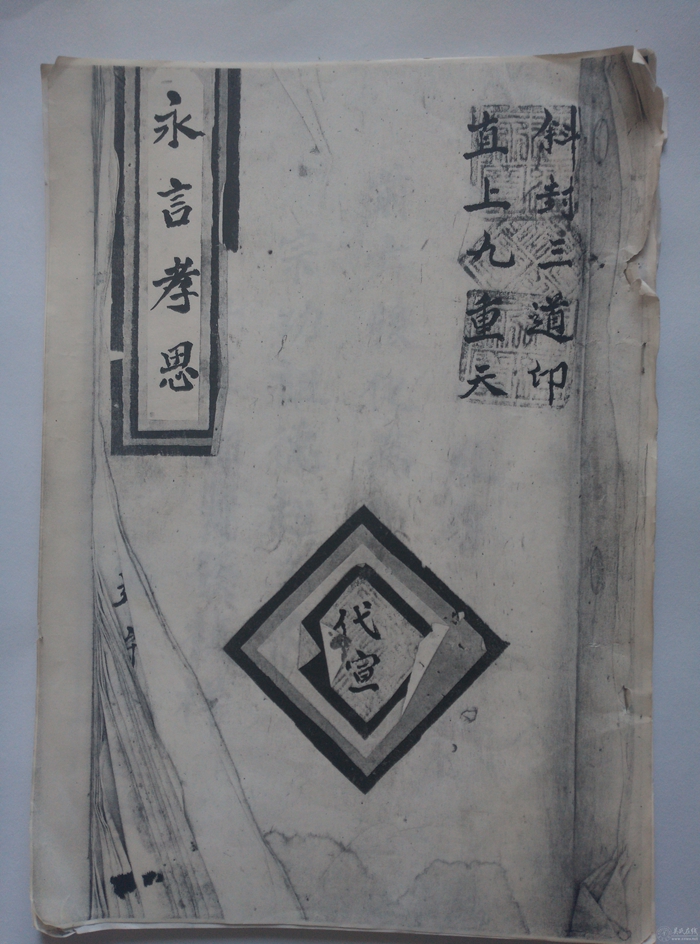 斜封三道印
直上九重天
永言孝思
代宣